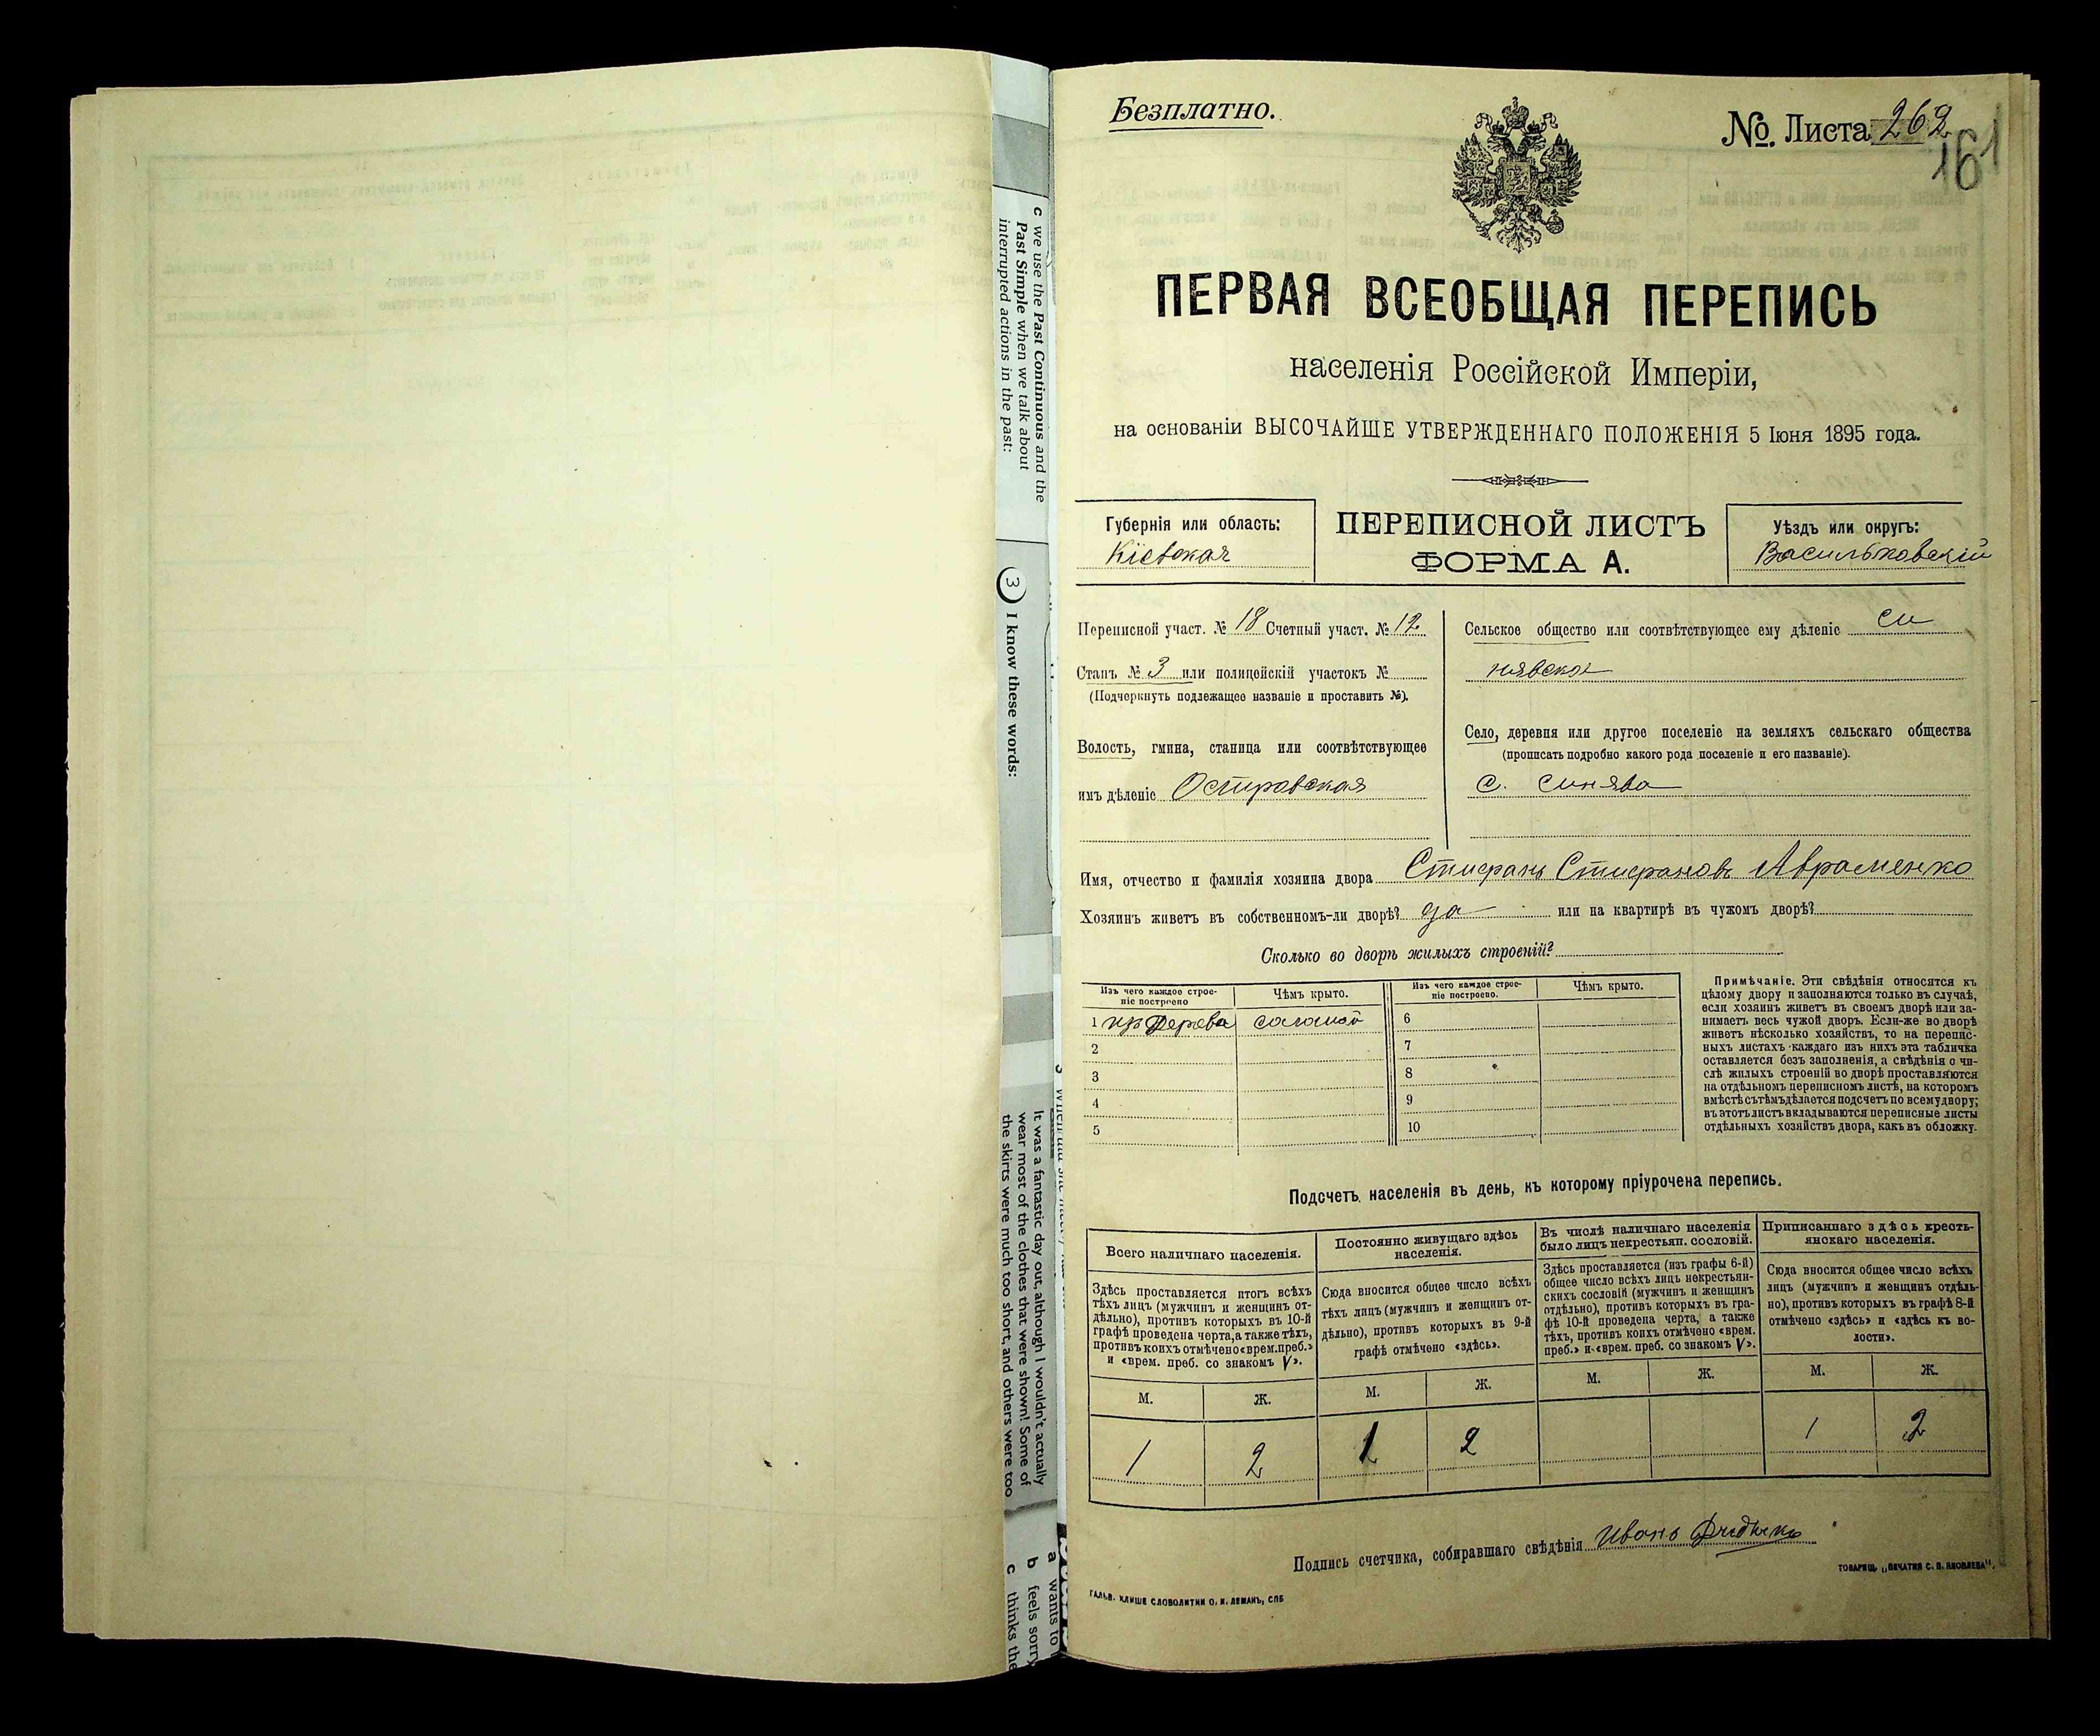 c we use the Past Continuous and the
Past Simple when we talk about
interrupted actions in the past:
3 I know these words:
It was a fantastic day out, although I wouldn't actually
wear most of the clothes that were shown! Some of
the skirts were much too short, and others were too
a wants to
b feels sorry
c thinks the
Безплатно.
№. Листа 262
161
ПЕРВАЯ ВСЕОБЩАЯ ПЕРЕПИСЬ
населенія Россійской Имперіи,
на основаніи ВЫСОЧАЙШЕ УТВЕРЖДЕННАГО ПОЛОЖЕНІЯ 5 Іюня 1895 года.
Губернія или область:
Кіевская
ПЕРЕПИСНОЙ ЛИСТЪ
ФОРМА А.
Уѣздъ или округъ:
Васильковскій
Переписной участ. № 18 Счетный участ. № 12
Станъ № 3 или полицейскій участокъ №
(Подчеркнуть подлежащее названіе и проставить №).
Волость, гмина, станица или соотвѣтствующее
имъ дѣленіе Островская
Сельское общество или соотвѣтствующее ему дѣленіе Си
нявское
Село, деревня или другое поселеніе на земляхъ сельскаго общества
(прописать подробно какого рода поселеніе и его названіе).
с. Синява
Имя, отчество и фамилія хозяина двора Стефанъ Стефановъ Авраменко
Хозяинъ живетъ въ собственномъ-ли дворѣ? да или на квартирѣ въ чужомъ дворѣ?
Сколько во дворѣ жилыхъ строеній?
Изъ чего каждое строе-
ніе построено
Чѣмъ крыто.
Изъ чего каждое строе-
ніе построено.
Чѣмъ крыто.
1 изъ дерева соломой
6
2
7
3
8
4
9
5
10
Примѣчаніе. Эти свѣдѣнія относятся къ
цѣлому двору и заполняются только въ случаѣ,
если хозяинъ живетъ въ своемъ дворѣ или за-
нимаетъ весь чужой дворъ. Если-же во дворѣ
живетъ нѣсколько хозяйствъ, то на перепис-
ныхъ листахъ каждаго изъ нихъ эта табличка
оставляется безъ заполненія, а свѣдѣнія о чи-
слѣ жилыхъ строеній во дворѣ проставляются
на отдѣльномъ переписномъ листѣ, на которомъ
вмѣстѣ съ тѣмъ дѣлается подсчетъ по всему двору;
въ этотъ листъ вкладываются переписные листы
отдѣльныхъ хозяйствъ двора, какъ въ обложку.
Подсчетъ населенія въ день, къ которому пріурочена перепись.
Всего наличнаго населенія.
Постоянно живущаго здѣсь
населенія.
Въ числѣ наличнаго населенія
было лицъ некрестьян. сословій.
Приписаннаго здѣсь кресть-
янскаго населенія.
Здѣсь проставляется итогъ всѣхъ
тѣхъ лицъ (мужчинъ и женщинъ от-
дѣльно), противъ которыхъ въ 10-й
графѣ проведена черта, а также тѣхъ,
противъ коихъ отмѣчено «врем. преб.»
и «врем. преб. со знакомъ V».
Сюда вносится общее число всѣхъ
тѣхъ лицъ (мужчинъ и женщинъ от-
дѣльно), противъ которыхъ въ 9-й
графѣ отмѣчено «здѣсь».
Здѣсь проставляется (изъ графы 6-й)
общее число всѣхъ лицъ некрестьян-
скихъ сословій (мужчинъ и женщинъ
отдѣльно), противъ которыхъ въ гра-
фѣ 10-й проведена черта, а также
тѣхъ, противъ коихъ отмѣчено «врем.
преб.» и «врем. преб. со знакомъ V».
Сюда вносится общее число всѣхъ
лицъ (мужчинъ и женщинъ отдѣль-
но), противъ которыхъ въ графѣ 8-й
отмѣчено «здѣсь» и «здѣсь къ во-
лости».
М. Ж. М. Ж. М. Ж. М. Ж.
1 2 1 2 1 2
Подпись счетчика, собиравшаго свѣдѣнія Иванъ
ГАЛЬВ. КЛИШЕ СЛОВОЛИТНИ О. И. ЛЕМАНЪ, СПБ
ТОВАРИЩ. „ПЕЧАТНЯ С. П. ЯКОВЛЕВА".